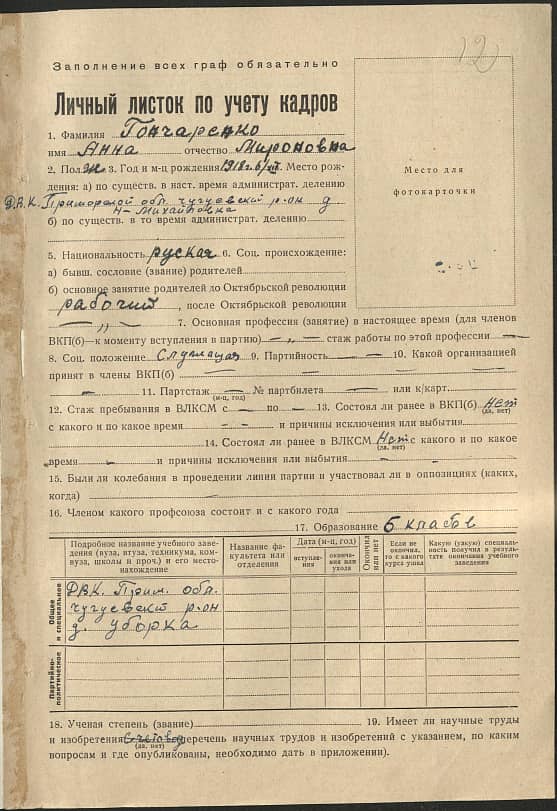 12
Заполнение всех граф обязательно
Личный листок по учету кадров
1. Фамилия Гончаренко
имя Анна отчество Мироновна
2. Пол ж 3. Год и м-ц рождения 1918 г. 6/VII. Место рож-
дения: а) по существ. в наст. время администрат. делению
Д.В.К. Приморской обл. чугуевский р-он д.
Н-Михайловка
б) по существ. в то время администрат. делению
5. Национальность руская 6. Соц. происхождение:
а) бывш. сословие (звание) родителей
б) основное занятие родителей до Октябрьской революции
рабочий, после Октябрьской революции
— „ — 7. Основная профессия (занятие) в настоящее время (для членов
ВКП(б)—к моменту вступления в партию) — „ — стаж работы по этой профессии —
8. Соц. положение Служащая 9. Партийность — 10. Какой организацией
принят в члены ВКП(б) — — —
— 11. Партстаж — № партбилета — или к/карт. —
(м-ц, год)
12. Стаж пребывания в ВЛКСМ с — по — 13. Состоял ли ранее в ВКП(б) Нет
(да, нет)
с какого и по какое время — - и причины исключения или выбытия
14. Состоял ли ранее в ВЛКСМ Нет с какого и по какое
(да, нет)
время — и причины исключения или выбытия —
15. Были ли колебания в проведении линии партии и участвовал ли в оппозициях (каких,
когда) — — — —
16. Членом какого профсоюза состоит и с какого года
17. Образование 5 класов
Подробное название учебного заве-
дения (вуза, втуза, техникума, ком-
вуза, школы и проч.) и его место-
нахождение
Название фа-
культета или
отделения
Дата (м-ц, год)
вступле-
ния
оконча-
ния или
ухода
Окончил
или нет
Если не
окончил,
то с какого
курса ушел
Какую (узкую) специаль-
ность получил в резуль-
тате окончания учебного
заведения
Общее
и специальное
ДВК. Прим. обл.
чугуевский р-он
д. уборка
Партийно-
политическое
18. Ученая степень (звание) 19. Имеет ли научные труды
и изобретения Счетовод перечень научных трудов и изобретений с указанием, по каким
(да, нет)
вопросам и где опубликованы, необходимо дать в приложении).
Место для
фотокарточки